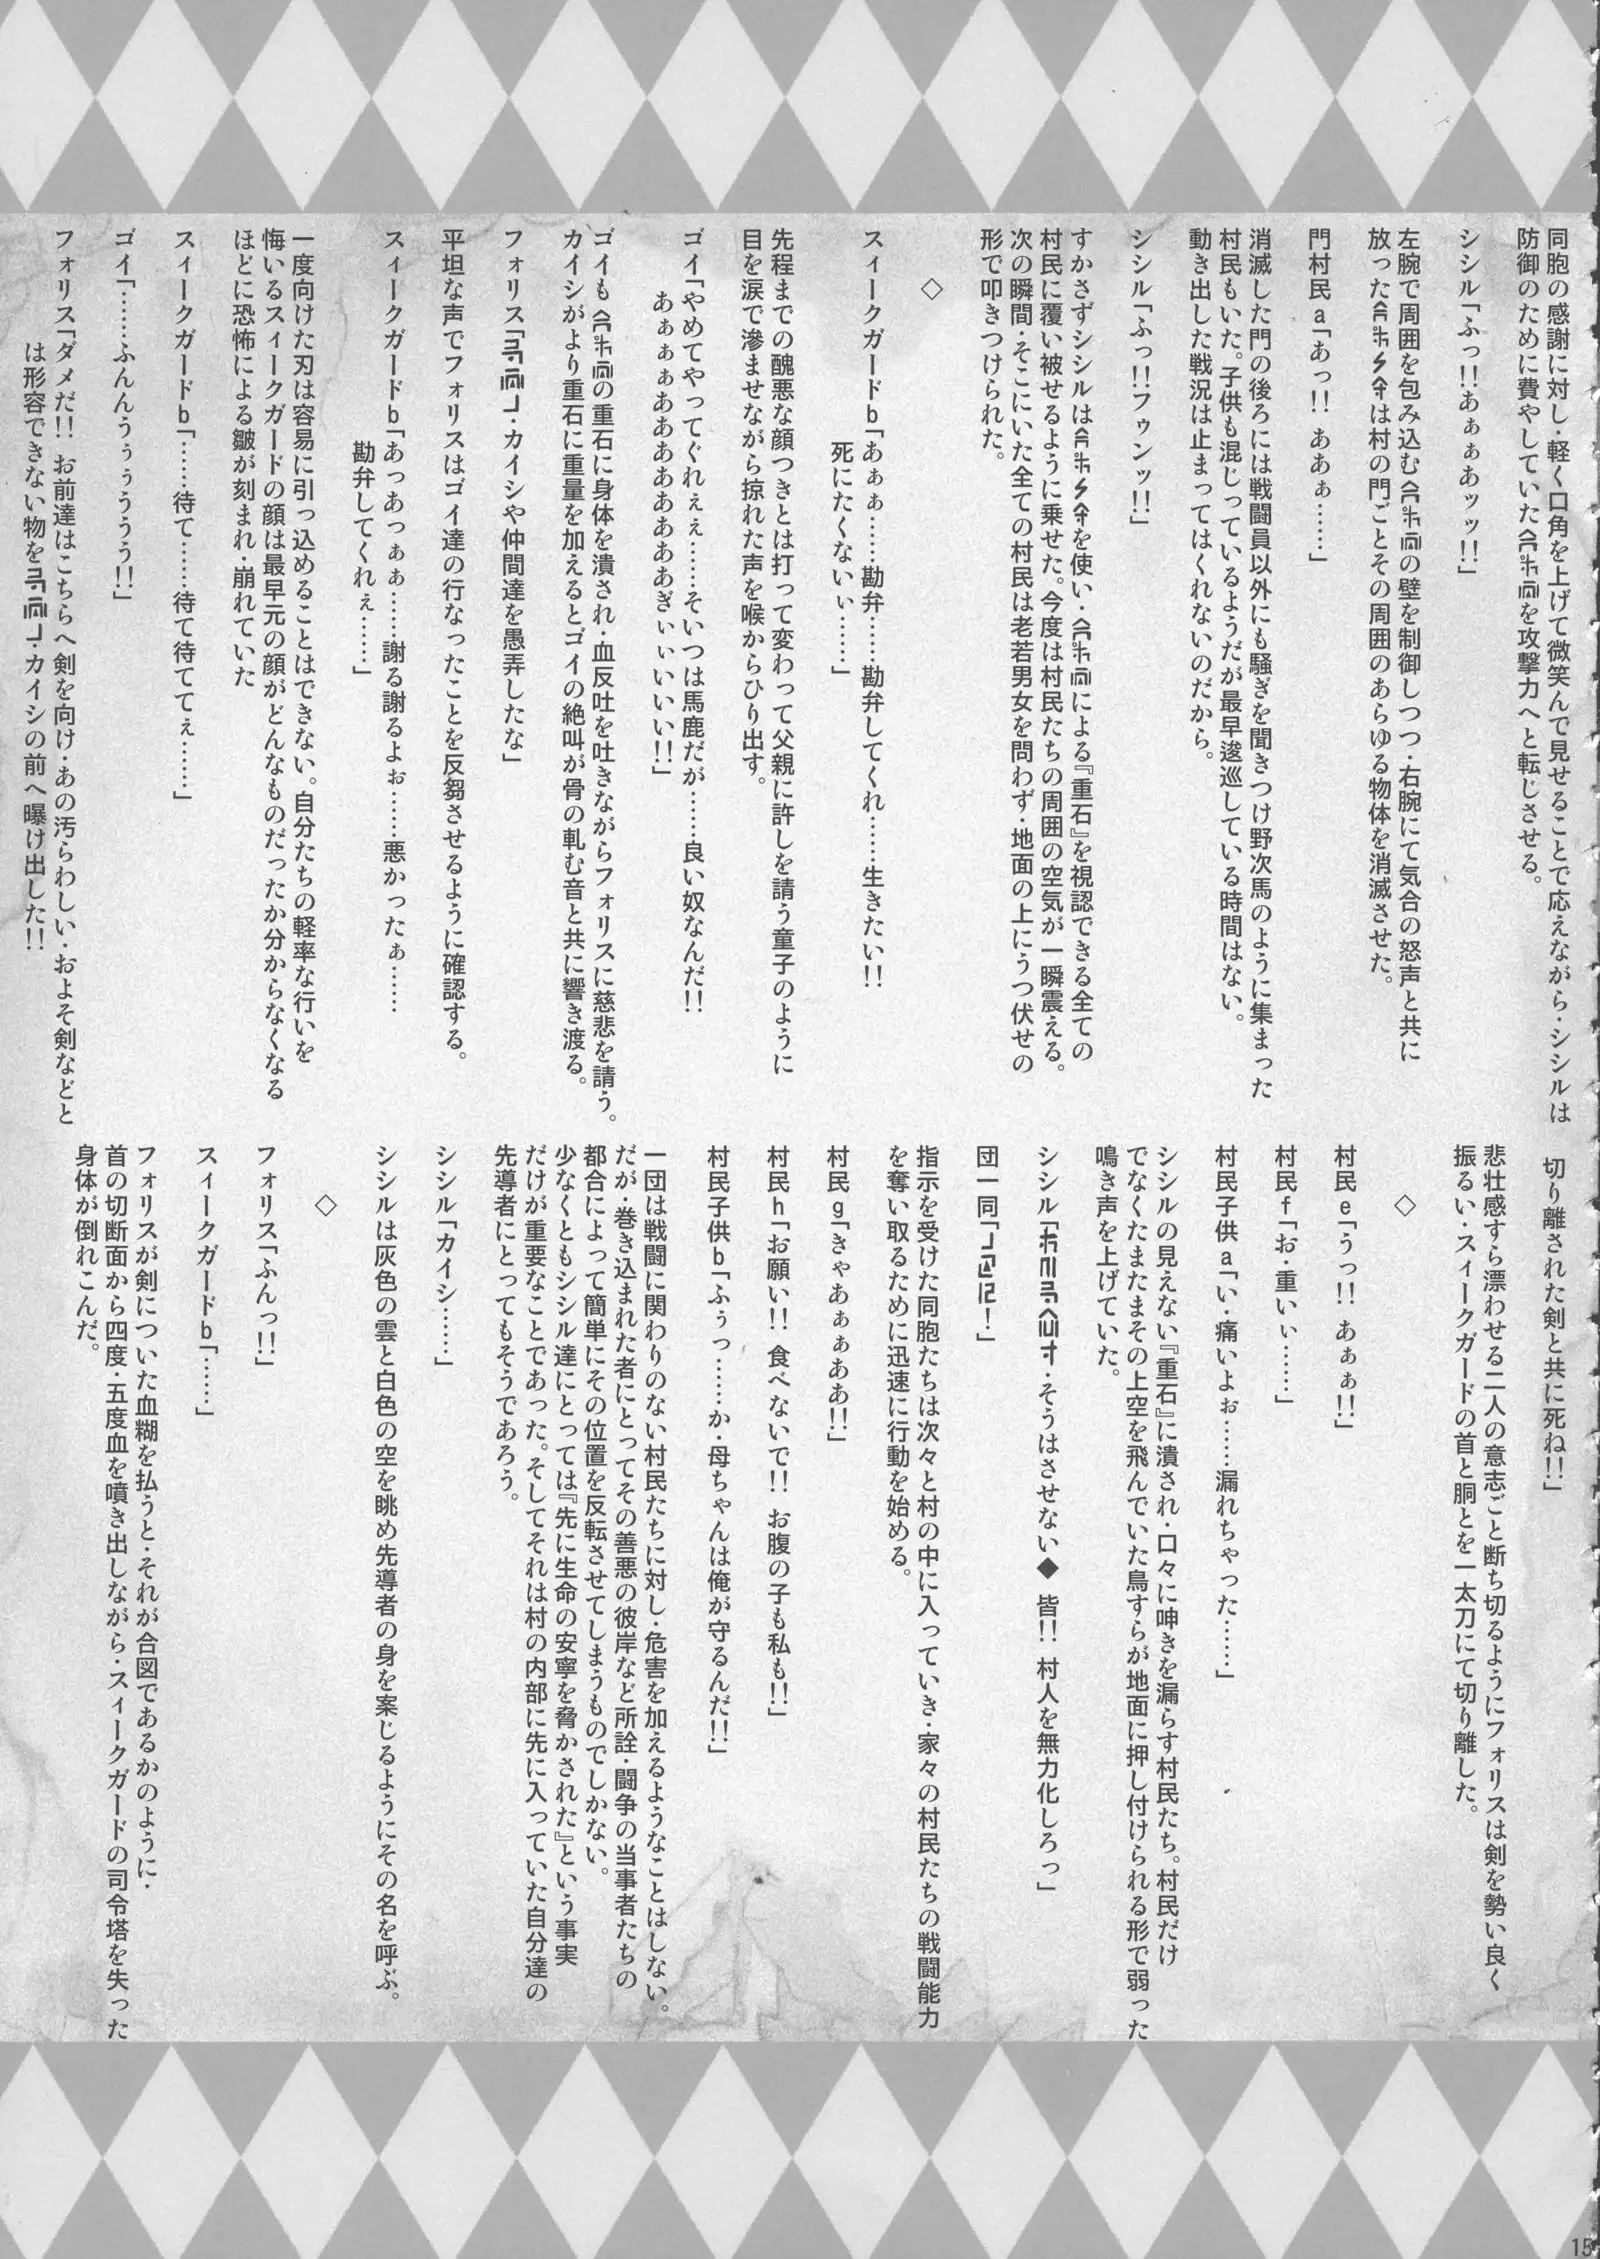 同胞の感謝に対し・軽く口角を上げて微笑んで見せることで応えながら・シシルは
防御のために費やしていたを攻撃力へと転じさせる。
シシル「ふっ!!あぁぁあッッ!!」
左腕で周囲を包み込むの壁を制御しつつ・右腕にて気合の怒声と共に
放ったは村の門ごとその周囲のあらゆる物体を消滅させた。
門村民a「あっ!! ああぁ……」
消滅した門の後ろには戦闘員以外にも騒ぎを聞きつけ野次馬のように集まった
村民もいた。子供も混じっているようだが最早逡巡している時間はない。
動き出した戦況は止まってはくれないのだから。
シシル「ふっ!!フゥンッ!!」
すかさずシシルはを使い・による『重石』を視認できる全ての
村民に覆い被せるように乗せた。今度は村民たちの周囲の空気が一瞬震える。
次の瞬間・そこにいた全ての村民は老若男女を問わず・地面の上にうつ伏せの
形で叩きつけられた。
◇
スィークガードb「あぁぁ……勘弁……勘弁してくれ……生きたい!!
死にたくないぃ……」
先程までの醜悪な顔つきとは打って変わって父親に許しを請う童子のように
目を涙で滲ませながら掠れた声を喉からひり出す。
ゴイ「やめてやってぐれぇぇ……そいつは馬鹿だが……良い奴なんだ!!
あぁぁぁああああああああぎぃぃいいい!!」
ゴイもの重石に身体を潰され・血反吐を吐きながらフォリスに慈悲を請う。
カイシがより重石に重量を加えるとゴイの絶叫が骨の軋む音と共に響き渡る。
フォリス「・カイシや仲間達を愚弄したな」
平坦な声でフォリスはゴイ達の行なったことを反芻させるように確認する。
スィークガードb「あっあっぁぁ……謝る謝るよぉ……悪かったぁ……
勘弁してくれぇ……」
一度向けた刃は容易に引っ込めることはできない。自分たちの軽率な行いを
悔いるスィークガードの顔は最早元の顔がどんなものだったか分からなくなる
ほどに恐怖による皺が刻まれ・崩れていた
スィークガードb「……待て……待て待ててぇ……」
ゴイ「……ふんんうぅぅううう!!」
フォリス「ダメだ!! お前達はこちらへ剣を向け・あの汚らわしい・およそ剣などと
は形容できない物を・カイシの前へ曝け出した!!
切り離された剣と共に死ね!!」
悲壮感すら漂わせる二人の意志ごと断ち切るようにフォリスは剣を勢い良く
振るい・スィークガードの首と胴とを一太刀にて切り離した。
◇
村民e「うっ!! あぁぁ!!」
村民f「お・重いぃ……」
村民子供a「い・痛いよぉ……漏れちゃった……」
シシルの見えない『重石』に潰され・口々に呻きを漏らす村民たち。村民だけ
でなくたまたまその上空を飛んでいた鳥すらが地面に押し付けられる形で弱った
鳴き声を上げていた。
シシル「・そうはさせない◆ 皆!! 村人を無力化しろっ」
団一同「!」
指示を受けた同胞たちは次々と村の中に入っていき・家々の村民たちの戦闘能力
を奪い取るために迅速に行動を始める。
村民g「きゃあぁぁああ!!」
村民h「お願い!! 食べないで!! お腹の子も私も!!」
村民子供b「ふぅっ……か・母ちゃんは俺が守るんだ!!」
一団は戦闘に関わりのない村民たちに対し・危害を加えるようなことはしない。
だが・巻き込まれた者にとってその善悪の彼岸など所詮・闘争の当事者たちの
都合によって簡単にその位置を反転させてしまうものでしかない。
少なくともシシル達にとっては『先に生命の安寧を脅かされた』という事実
だけが重要なことであった。そしてそれは村の内部に先に入っていた自分達の
先導者にとってもそうであろう。
シシル「カイシ……」
シシルは灰色の雲と白色の空を眺め先導者の身を案じるようにその名を呼ぶ。
◇
フォリス「ふんっ!!」
スィークガードb「……」
フォリスが剣についた血糊を払うと・それが合図であるかのように・
首の切断面から四度・五度血を噴き出しながら・スィークガードの司令塔を失った
身体が倒れこんだ。
15